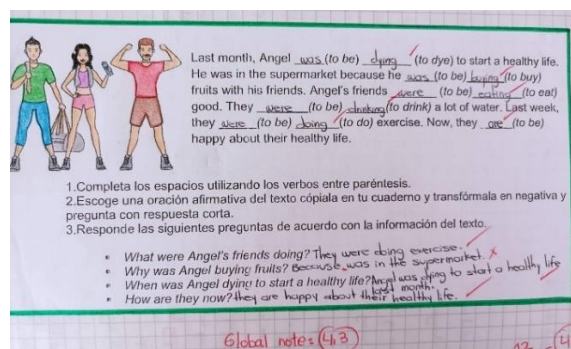 Last month, Angel was (to be) dying (to dye) to start a healthy life.
He was in the supermarket because he was (to be) buying (to buy)
fruits with his friends. Angel's friends were (to be) eating (to eat)
good. They were (to be) drinking (to drink) a lot of water. Last week,
they were (to be) doing (to do) exercise. Now, they are (to be)
happy about their healthy life.
1.Completa los espacios utilizando los verbos entre paréntesis.
2.Escoge una oración afirmativa del texto cópiala en tu cuaderno y transfórmala en negativa y
pregunta con respuesta corta.
3.Responde las siguientes preguntas de acuerdo con la información del texto.
What were Angel's friends doing? They were doing exercise.
Why was Angel buying fruits? Because was in the supermarket.
When was Angel dying to start a healthy life? Angel was dying to start a healthy life
last month.
How are they now? they are happy about their healthy life.
Global note: 4,3